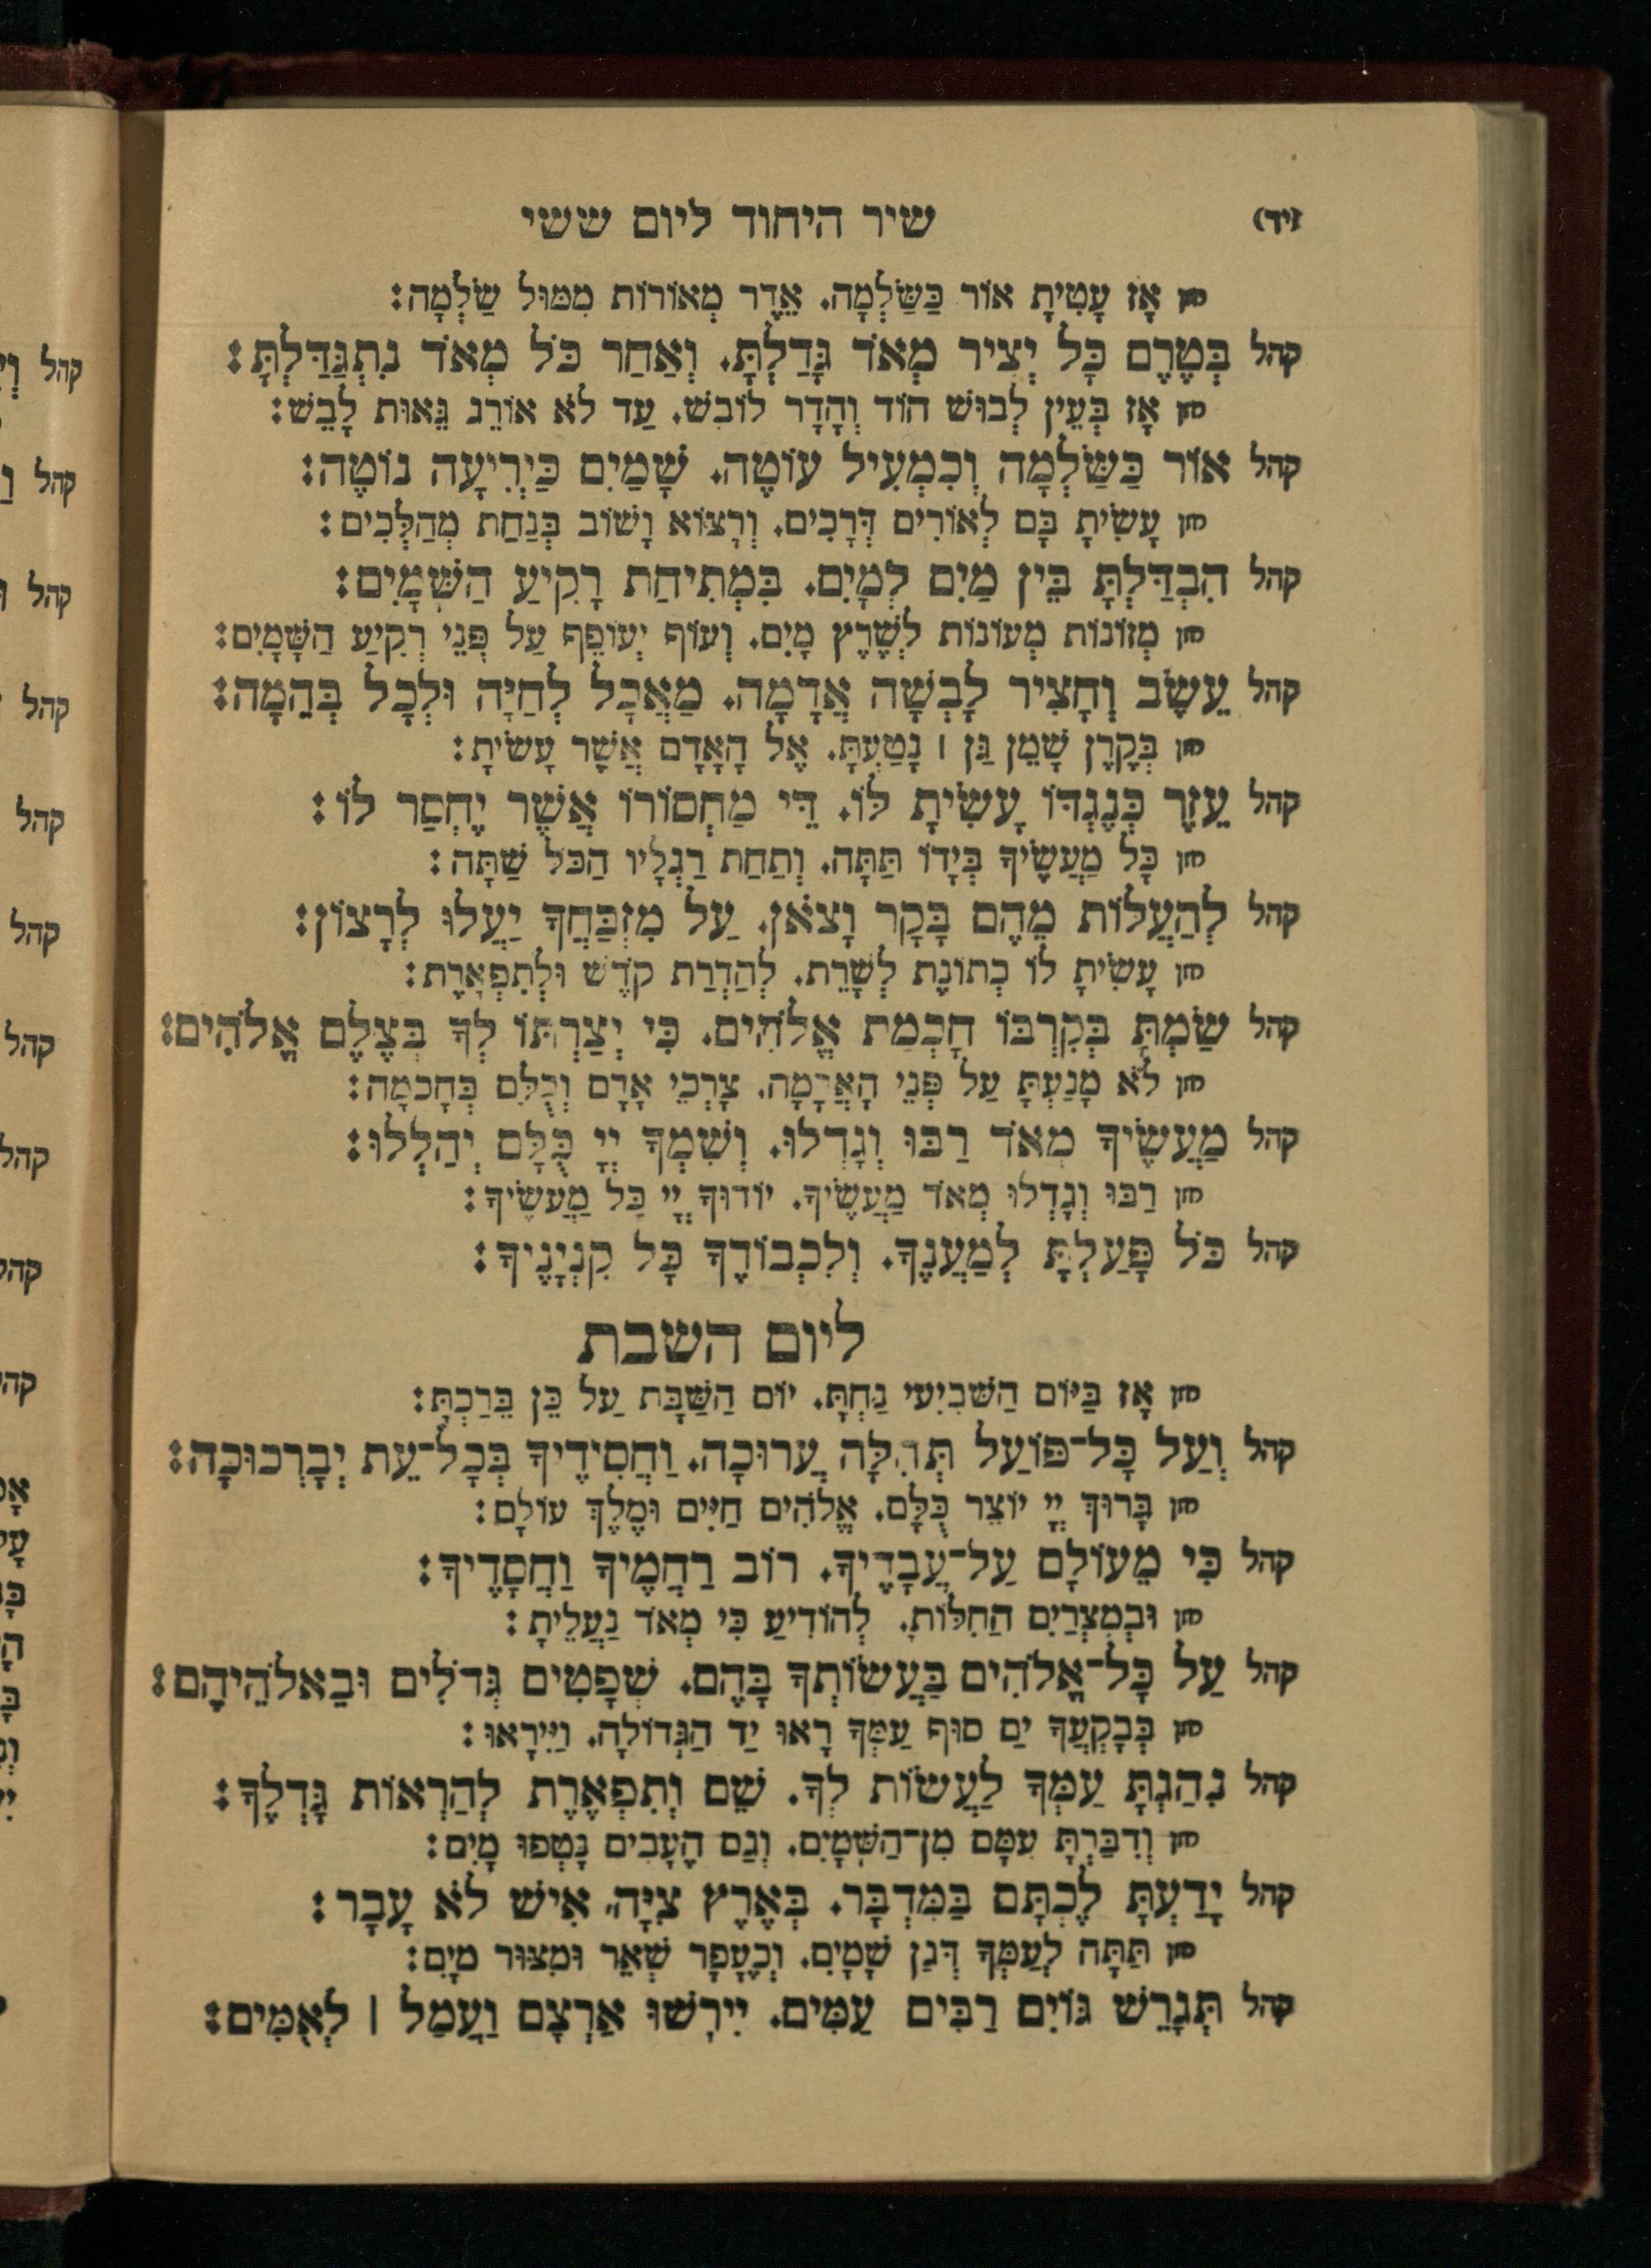 (יד) שיר היחוד ליום ששי
חזן אָז עָטִיתָ אוֹר כַּשַּׂלְמָה. אֶדֶר מְאוֹרוֹת מִמּוּל שַׂלְמָה:
קהל בְּטֶרֶם כָּל יְצִיר מְאֹד גָּדַלְתָּ. וְאַחַר כֹּל מְאֹד נִתְגַּדַּלְתָּ:
חזן אָז בְּעֵין לְבוּשׁ הוֹד וְהָדָר לוֹבִשׁ. עַד לֹא אוֹרֵג גֵּאוּת לָבֵשׁ:
קהל אוֹר כַּשַּׂלְמָה וְכִמְעִיל עוֹטֶה. שָׁמַיִם כַּיְרִיעָה נוֹטֶה:
חזן עָשִׂיתָ בָּם לְאוֹרִים דְּרָכִים. וְרָצוֹא וָשׁוֹב בְּנַחַת מְהַלְּכִים:
קהל הִבְדַּלְתָּ בֵּין מַיִם לְמָיִם. בִּמְתִיחַת רָקִיעַ הַשָּׁמָיִם:
חזן מְזוֹנוֹת מְעוֹנוֹת לְשֶׁרֶץ מָיִם. וְעוֹף יְעוֹפֵף עַל פְּנֵי רְקִיעַ הַשָּׁמָיִם:
קהל עֵשֶׂב וְחָצִיר לָבְשָׁה אֲדָמָה. מַאֲכָל לְחַיָּה וּלְכָל בְּהֵמָה:
חזן בְּקֶרֶן שָׁמֵן גַּן ׀ נָטַעְתָּ. אֶל הָאָדָם אֲשֶׁר עָשִׂיתָ:
קהל עֵזֶר כְּנֶגְדּוֹ עָשִׂיתָ לּוֹ. דֵּי מַחְסוֹרוֹ אֲשֶׁר יֶחְסַר לוֹ:
חזן כָּל מַעֲשֶׂיךָ בְּיָדוֹ תַּתָּה. וְתַחַת רַגְלָיו הַכֹּל שַׁתָּה:
קהל לְהַעֲלוֹת מֵהֶם בָּקָר וָצֹאן. עַל מִזְבַּחֲךָ יַעֲלוּ לְרָצוֹן:
חזן עָשִׂיתָ לוֹ כְתוֹנֶת לְשָׁרֵת. לְהַדְרַת קֹדֶשׁ וּלְתִפְאָרֶת:
קהל שַׂמְתָּ בְּקִרְבּוֹ חָכְמַת אֱלֹהִים. כִּי יְצַרְתּוֹ לְךָ בְּצֶלֶם אֱלֹהִים:
חזן לֹא מָנַעְתָּ עַל פְּנֵי הָאֲדָמָה. צָרְכֵי אָדָם וְכֻלָּם בְּחָכְמָה:
קהל מַעֲשֶׂיךָ מְאֹד רַבּוּ וְגָדְלוּ. וְשִׁמְךָ יְיָ כֻּלָּם יְהַלְלוּ:
חזן רַבּוּ וְגָדְלוּ מְאֹד מַעֲשֶׂיךָ. יוֹדוּךָ יְיָ כָּל מַעֲשֶׂיךָ:
קהל כֹּל פָּעַלְתָּ לְמַעֲנֶךָ. וְלִכְבוֹדְךָ כָּל קִנְיָנֶיךָ:
ליום השבת
חזן אָז בַּיּוֹם הַשְּׁבִיעִי נַחְתָּ. יוֹם הַשַּׁבָּת עַל כֵּן בֵּרַכְתָּ:
קהל וְעַל כָּל־פּוֹעַל תְּהִלָּה עֲרוּכָה. וַחֲסִידֶיךָ בְּכָל־עֵת יְבָרְכוּכָה:
חזן בָּרוּךְ יְיָ יוֹצֵר כֻּלָּם. אֱלֹהִים חַיִּים וּמֶלֶךְ עוֹלָם:
קהל כִּי מֵעוֹלָם עַל־עֲבָדֶיךָ. רוֹב רַחֲמֶיךָ וַחֲסָדֶיךָ:
חזן וּבְמִצְרַיִם הַחִלּוֹתָ. לְהוֹדִיעַ כִּי מְאֹד נַעֲלֵיתָ:
קהל עַל כָּל־אֱלֹהִים בַּעֲשׂוֹתְךָ בָּהֶם. שְׁפָטִים גְּדֹלִים וּבֵאלֹהֵיהֶם:
חזן בְּבָקְעֲךָ יַם סוּף עַמְּךָ רָאוּ יַד הַגְּדוֹלָה. וַיִּירָאוּ:
קהל נִהַגְתָּ עַמְּךָ לַעֲשׂוֹת לְךָ. שֵׁם וְתִפְאֶרֶת לְהַרְאוֹת גָּדְלֶךָ:
חזן וְדִבַּרְתָּ עִמָּם מִן־הַשָּׁמָיִם. וְגַם הֶעָבִים נָטְפוּ מָיִם:
קהל יָדַעְתָּ לֶכְתָּם בַּמִּדְבָּר. בְּאֶרֶץ צִיָּה אִישׁ לֹא עָבָר:
חזן תַּתָּה לְעַמְּךָ דְּגַן שָׁמָיִם. וְכֶעָפָר שְׁאֵר וּמִצּוּר מָיִם:
קהל תְּגָרֵשׁ גּוֹיִם רַבִּים עַמִּים. יִירְשׁוּ אַרְצָם וַעֲמַל ׀ לְאֻמִּים: